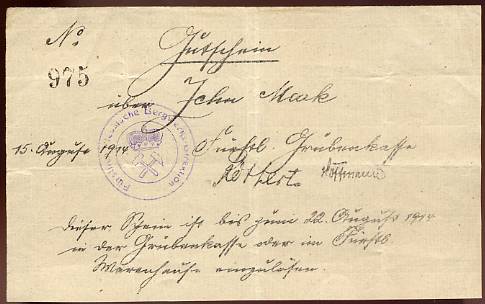 No
975
Gutschein
über Zehn Mark
15. August 1914 Fürstl. Grubenkasse
Hoffmann
dieser Schein ist bis zum 22. August 1914
in der Grubenkasse oder im Fürstl
Warenhause einzulösen.